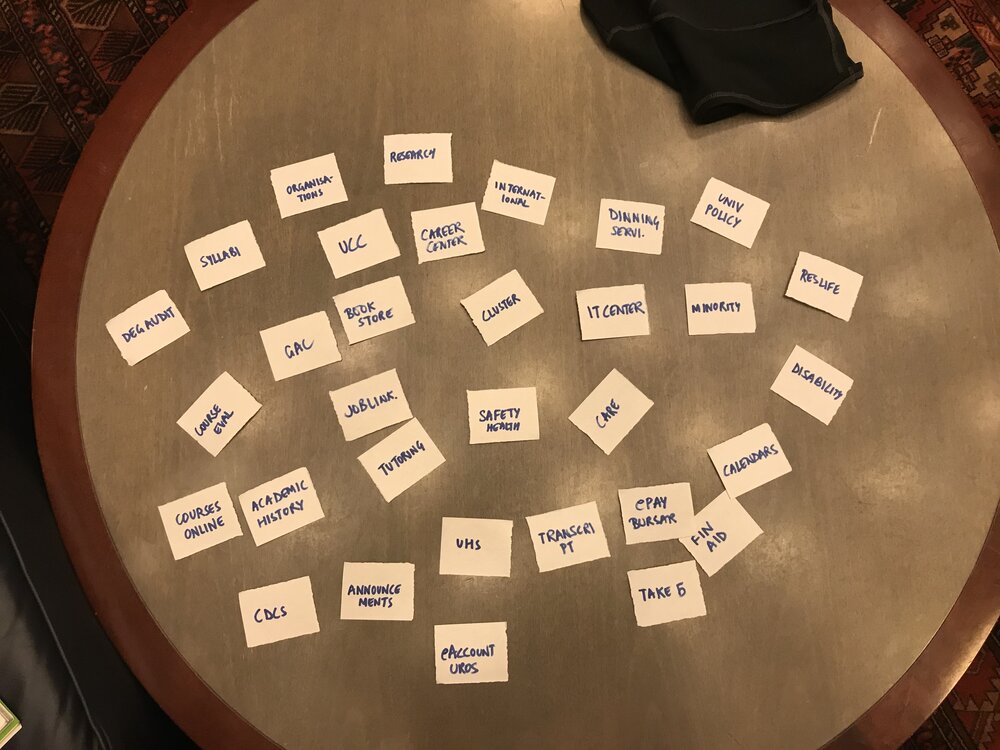 RESEARCH
ORGANISA-
TIONS
INTERNAT-
IONAL
UNIV
POLICY
DINNING
SERVI.
CAREER
CENTER
UCC
SYLLABI
RESLIFE
DEGAUDIT
BOOK
STORE
CLUSTER
IT CENTER
MINORITY
GAC
DISABILITY
COURSE
EVAL
JOBLINK.
SAFETY
HEALTH
CARE
TUTORING
CALENDARS
COURSES
ONLINE
ACADEMIC
HISTORY
UHS
TRANSCRI
PT
ePAY
BURSAR
FIN
AID
CDCS
ANNOUNCE
MENTS
TAKE 5
eACCOUNT
UROS